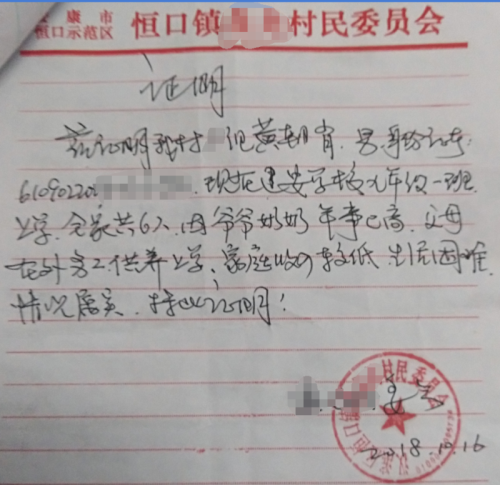 康市
恒口示范区
恒口镇 村民委员会
证明
兹证明我村 组黄朝肖,男,身份证号:
61090220 ,现在建安学校九年级一班
上学,全家共6人,因爷爷奶奶年事已高,父母
在外务工供养上学,家庭收入较低,生活困难
情况属实,特此证明!
村民委员会
2018.10.16